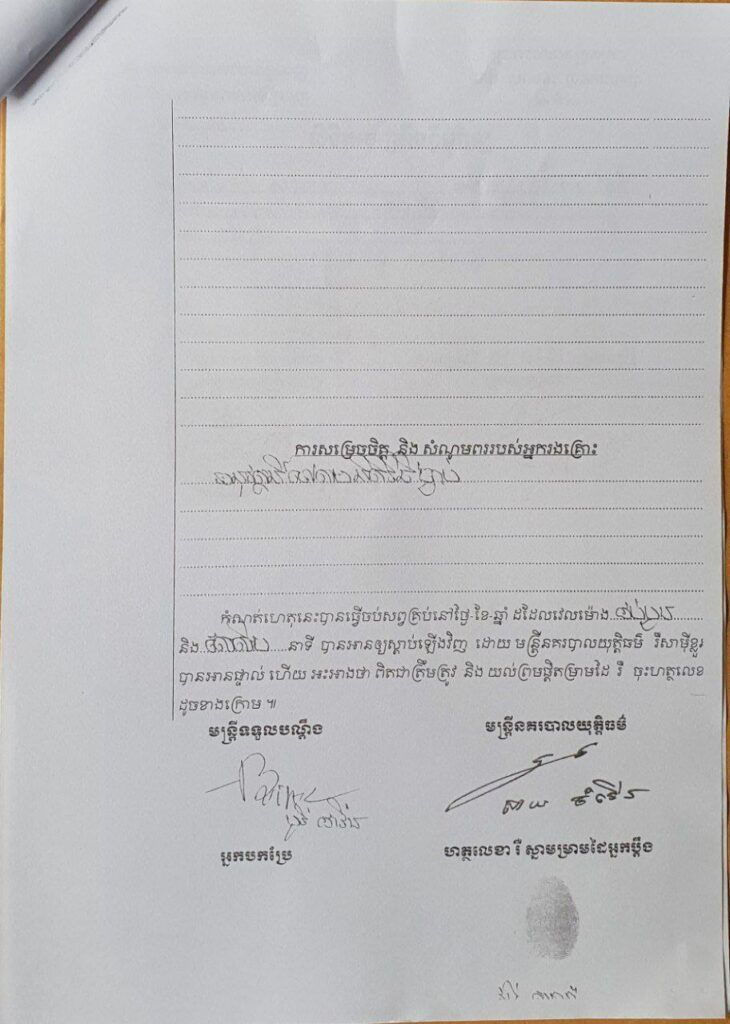 ការសម្រេចចិត្ត និង សំណូមពររបស់អ្នករងគ្រោះ
កំណត់ហេតុនេះបានធ្វើចប់សព្វគ្រប់នៅថ្ងៃ-ខែ-ឆ្នាំ ដដែលវេលម៉ោង
និង នាទី បានអានឲ្យស្តាប់ឡើងវិញ ដោយ មន្ត្រីនគរបាលយុត្តិធម៌ រឺសាម៉ីខ្លួន
បានអានផ្ទាល់ ហើយ អះអាងថា ពិតជាត្រឹមត្រូវ និង យល់ព្រមផ្តិតម្រាមដៃ រឺ ចុះហត្ថលេខ
ដូចខាងក្រោម ៕
មន្ត្រីទទួលបណ្តឹង
មន្ត្រីនគរបាលយុត្តិធម៌
អ្នកបកប្រែ
ហត្ថលេខា រឺ ស្នាមម្រាមដៃអ្នកប្តឹង